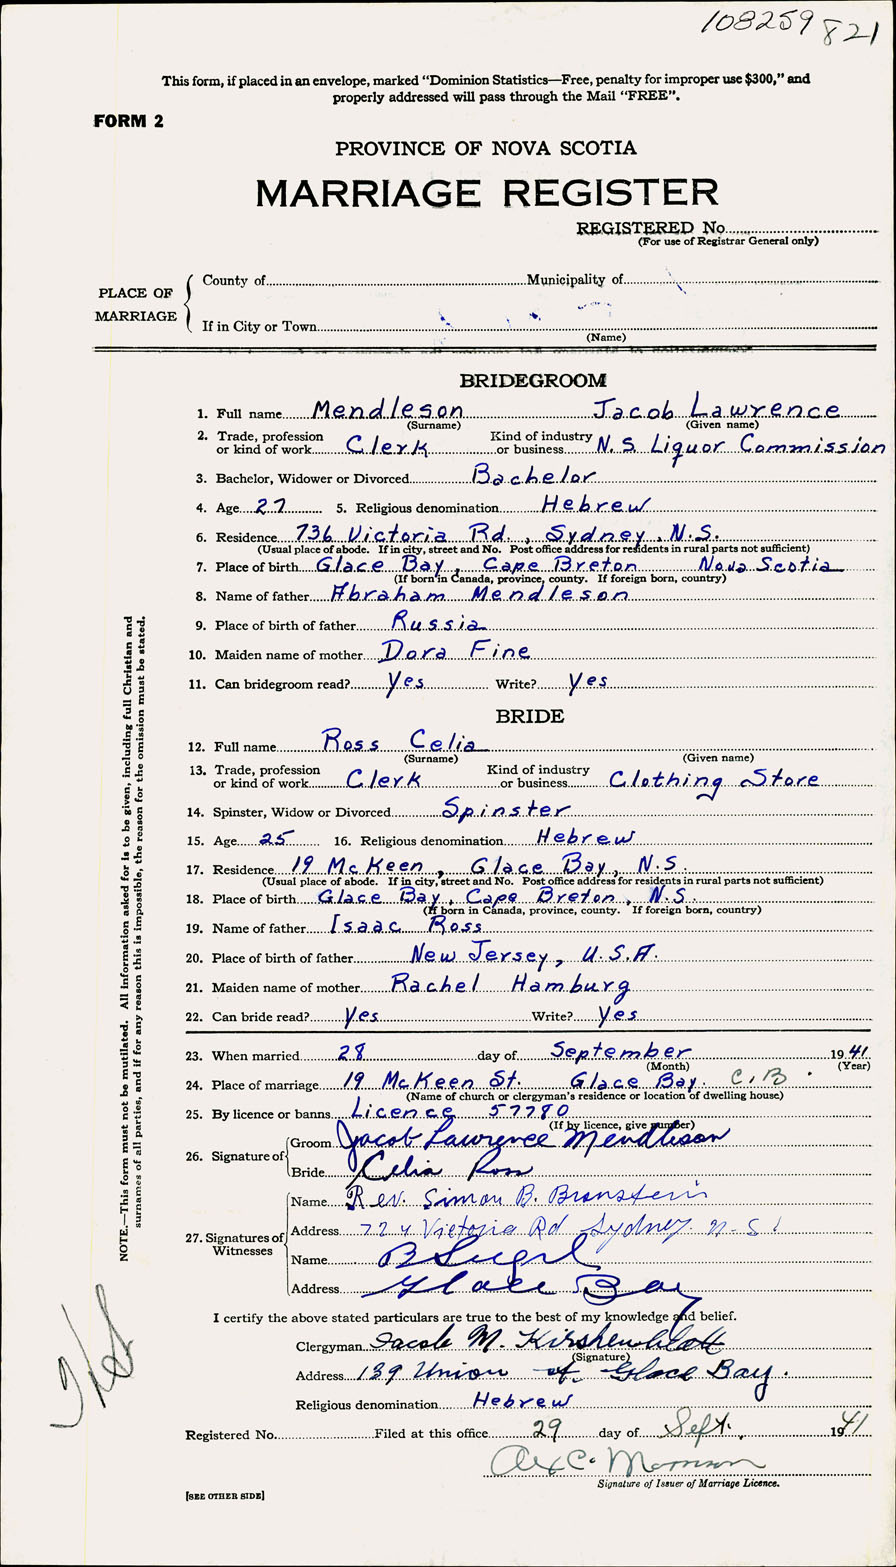 108259 821
This form, if placed in an envelope, marked “Dominion Statistics—Free, penalty for improper use $300,” and
properly addressed will pass through the Mail “FREE”.
FORM 2
PROVINCE OF NOVA SCOTIA
MARRIAGE REGISTER
REGISTERED No.
(For use of Registrar General only)
PLACE OF MARRIAGE
County of Municipality of
If in City or Town
(Name)
BRIDEGROOM
1. Full name Mendleson Jacob Lawrence
(Surname) (Given name)
2. Trade, profession or kind of work Clerk Kind of industry or business N.S. Liquor Commission
3. Bachelor, Widower or Divorced Bachelor
4. Age 27 5. Religious denomination Hebrew
6. Residence 736 Victoria Rd., Sydney, N.S.
(Usual place of abode. If in city, street and No. Post office address for residents in rural parts not sufficient)
7. Place of birth Glace Bay, Cape Breton Nova Scotia
(If born in Canada, province, county. If foreign born, country)
8. Name of father Abraham Mendleson
9. Place of birth of father Russia
10. Maiden name of mother Dora Fine
11. Can bridegroom read? Yes Write? Yes
BRIDE
12. Full name Ross Celia
(Surname) (Given name)
13. Trade, profession or kind of work Clerk Kind of industry or business Clothing Store
14. Spinster, Widow or Divorced Spinster
15. Age 25 16. Religious denomination Hebrew
17. Residence 19 McKeen, Glace Bay, N.S.
(Usual place of abode. If in city, street and No. Post office address for residents in rural parts not sufficient)
18. Place of birth Glace Bay, Cape Breton, N.S.
(If born in Canada, province, county. If foreign born, country)
19. Name of father Isaac Ross
20. Place of birth of father New Jersey, U.S.A.
21. Maiden name of mother Rachel Hamburg
22. Can bride read? Yes Write? Yes
23. When married 28 day of September 1941
(Month) (Year)
24. Place of marriage 19 McKeen St. Glace Bay. C.B.
(Name of church or clergyman's residence or location of dwelling house)
25. By licence or banns Licence 57780
(If by licence, give number)
26. Signature of Groom Jacob Lawrence Mendleson
Bride Celia Ross
27. Signatures of Witnesses
Name Rev. Simon B. Bronstein
Address 724 Victoria Rd Sydney. N.S.
Name B Seigel
Address Glace Bay
I certify the above stated particulars are true to the best of my knowledge and belief.
Clergyman Jacob M. Kirshenblatt
(Signature)
Address 139 Union st. Glace Bay.
Religious denomination Hebrew
Registered No. Filed at this office 29 day of Sept. 1941
Alex C. Morrison
Signature of Issuer of Marriage Licence.
[SEE OTHER SIDE]
NOTE.—This form must not be mutilated. All information asked for is to be given, including full Christian and
surnames of all parties, and if for any reason this is impossible, the reason for the omission must be stated.